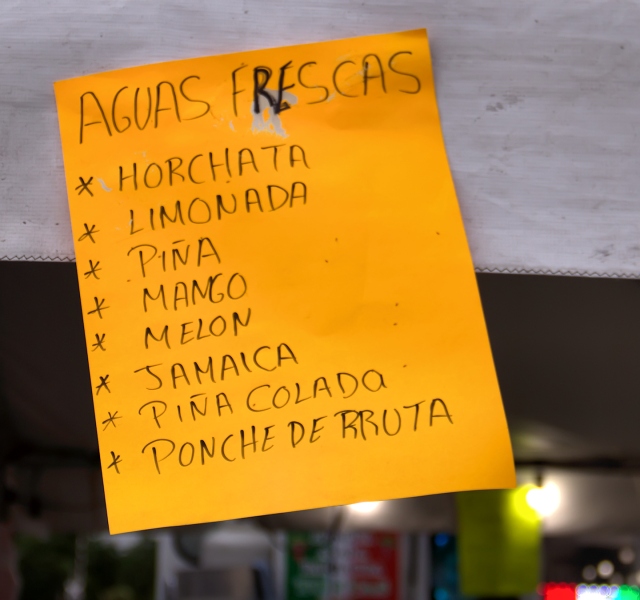 AGUAS FRESCAS
* HORCHATA
* LIMONADA
* PIÑA
* MANGO
* MELON
* JAMAICA
* PIÑA COLADa
* PONCHE DE RRUTA